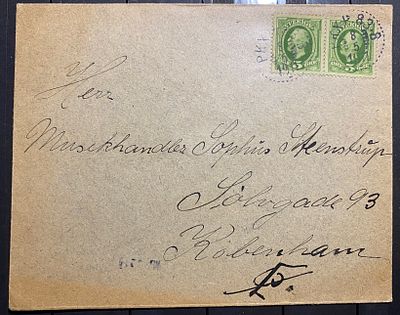 SVERIGE SVERIGE
5 5
PKXP 83
Herr
Musikhandler Sophus Steenstrup
Sølvgade 93
København